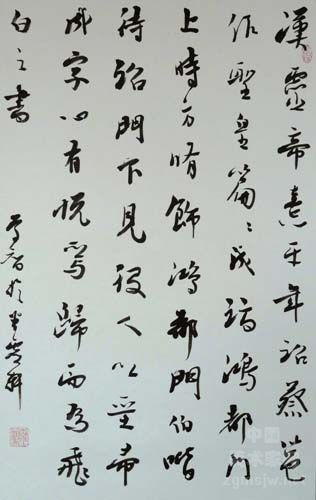 漢靈帝熹平年詔蔡邕
作聖皇篇〻成詣鴻都門
上時方脩飾鴻都門伯喈
待詔門下見役人以堊帚
成字心有悦焉歸而為飛
白之書
中国
术家